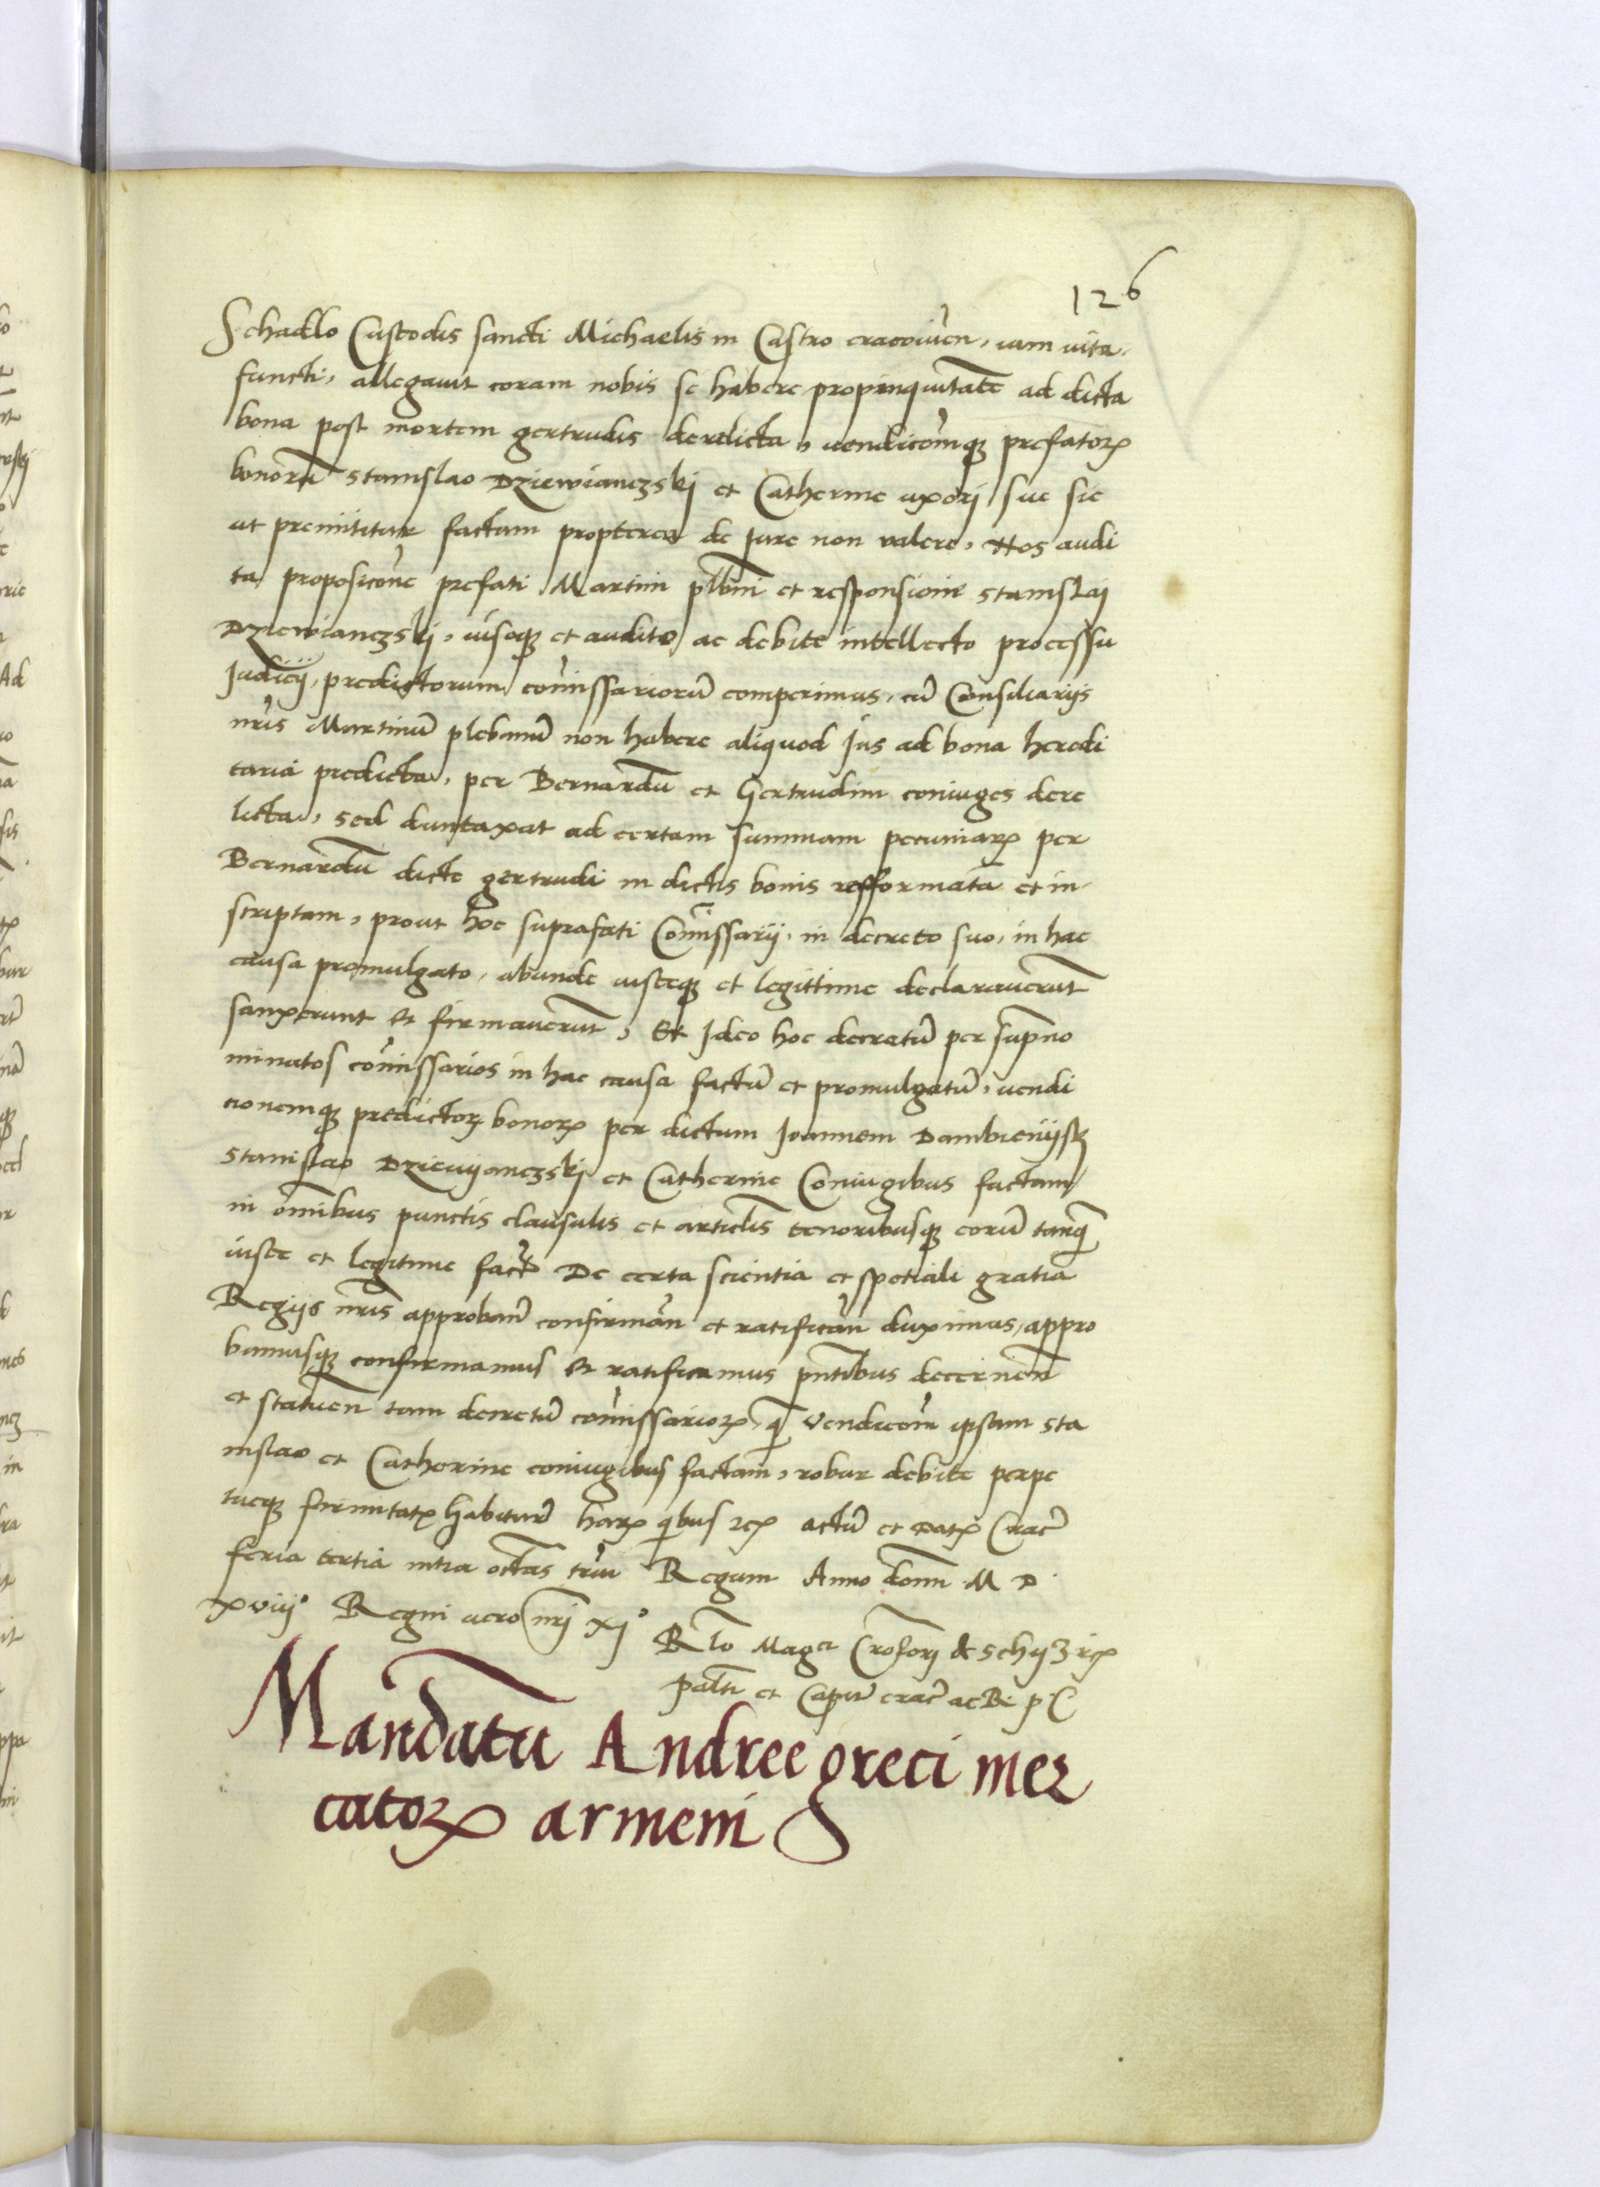 126
Schadlo Custodis sancti Michaelis in Castro cracovien, iam vita
functi, allegavit coram nobis se habere propinquitatē ad dicta
bona post mortem gertrudis derelicta, vendicōmqꝫ prefatoꝝ
bonorū Stanislao Dziewianczski et Catherine uxori sue sic
ut premittitur factam propterea de Jure non valere, Nos audi
ta proposicōne prefati Martini plbni et responsione Stanislai
Dziewianczski, visoqꝫ et audito ac debite intellecto processu
Judicij, predictorum comissariorū comperimus, cū Consiliarijs
nrīs Martinū plebanū non habere aliquod Jus ad bona heredi
taria predicta, per Bernardū et Gertrudim coniuges dere
licta, sed duntaxat ad certam summam pecuniaꝝ per
Bernardū dicte gertrudi in dictis bonis refformatā et in
scriptam, prout hoc suprafati Comissarij, in decreto suo, in hac
causa promulgato, abunde iusteqꝫ et legittime declaraverūt
sanxerunt et firmaverūt, Et Ideo hoc decretū per supno
minatos comissarios in hac causa factū et promulgatū, vendi
cionemqꝫ predictoꝝ bonoꝝ per dictum Joannem Dambienijsk
Stanislao Dziewijanczski et Catherine Coniugibus factam
in omībus punctis clausulis et articlis tenoribusqꝫ eorū tanqꝫ
iuste et legitime fact De certa scientia et spetiali gratia
Regijs nrīs approband confirmān et ratificān duximus, appro
bamusqꝫ confirmamus et ratificamus pntībus decernen
et statuen tam decretū comissarioꝝ, q̃ vendicōm ipsam Sta
nislao et Catherine coniugibus factam, robur debite perpe
tueqꝫ firmitatꝭ habiturā haꝝ qibus rcꝭ actū et Datꝭ Crac
feria tertia intra octās triū Regum Anno domī M D
xviijº Regni vero nrī xjº
Rlo Magci Crōfori de Schijdlowiecz
Palti et Capitan crac ac R P C
Mandatū Andree greci mer
catoꝝ armeni